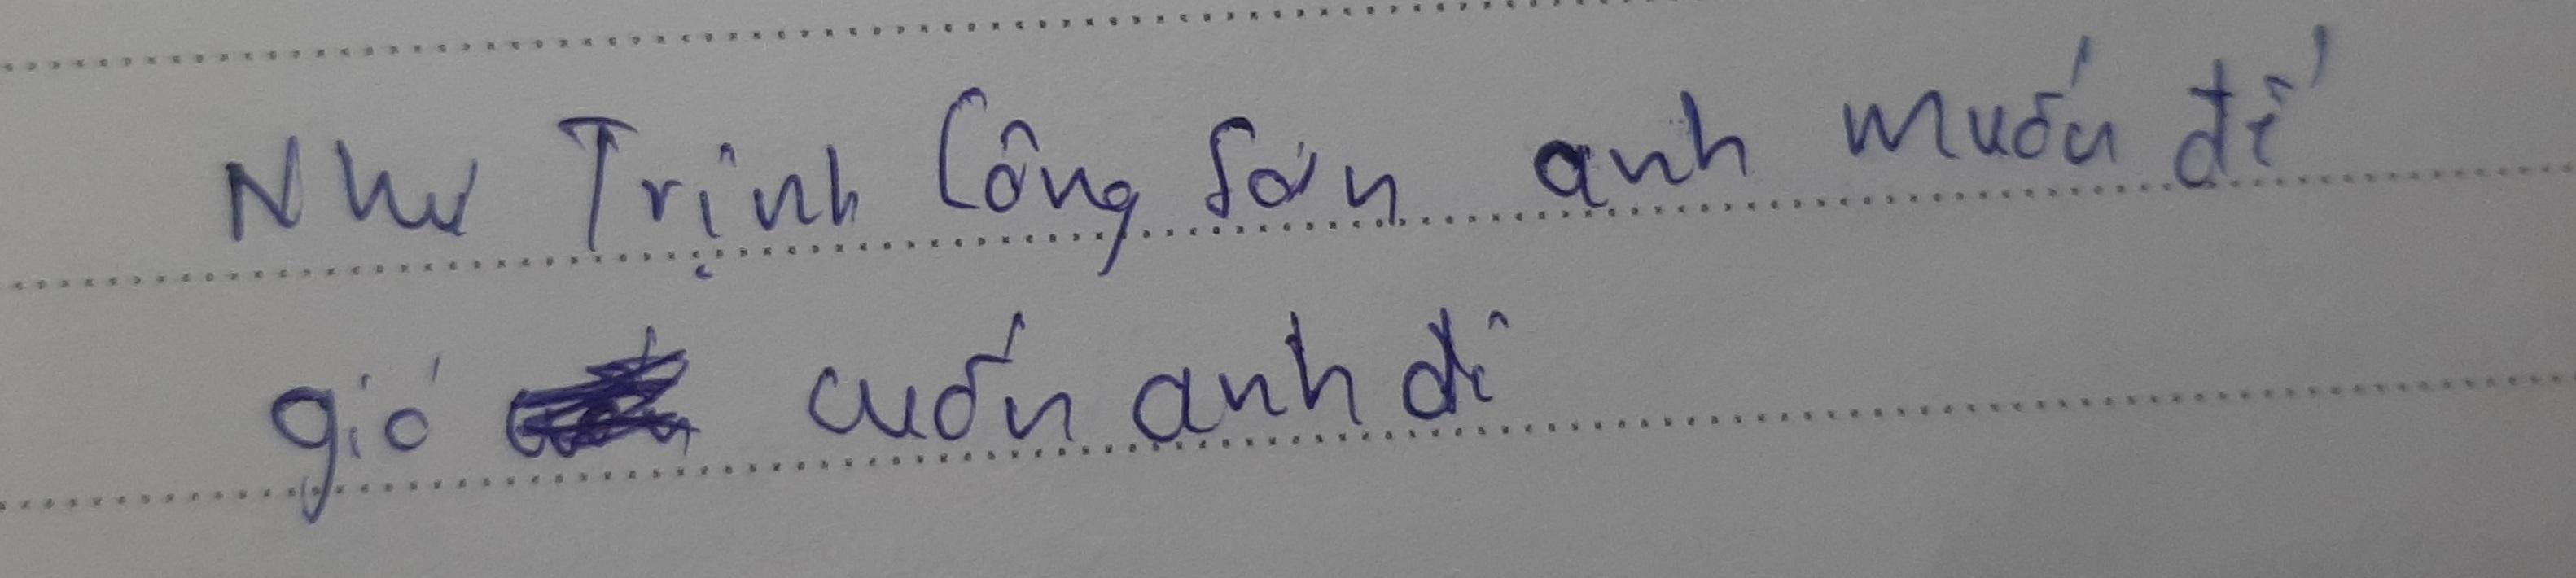 Như Trịnh Công Sơn anh muốn để
gió cuốn anh đi